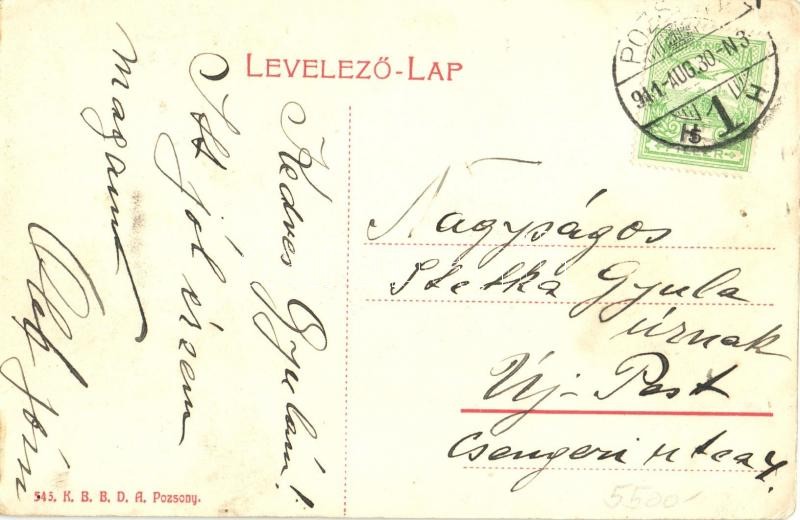 LEVELEZŐ-LAP
POZSONY
911-AUG.30.-N3
1 H
FILLÉR
Kedves Gyulám!
Itt jól érzem
magamat
Ölel Jóni
Nagyságos
Stetka Gyula
úrnak
Új-Pest
Csengeri utca 4.
545. K. B. B. D. A. Pozsony.
5500-